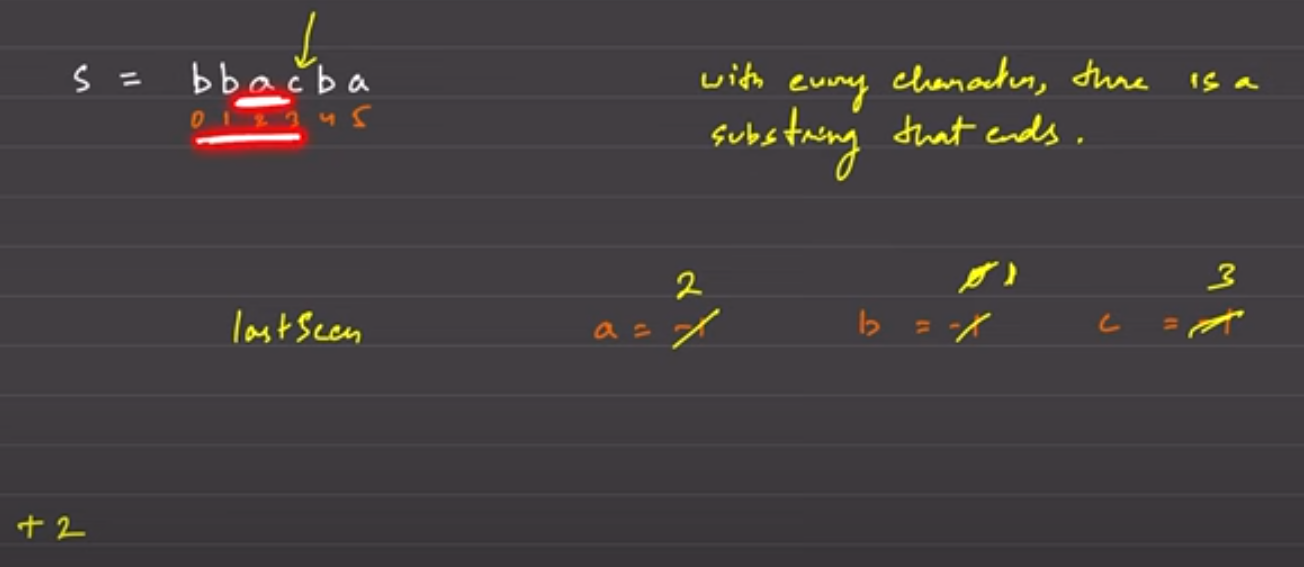 s = bbacba
0 1 2 3 4 5
with every character, there is a
substring that ends.
2 0 1 3
lastSeen a = -1 b = -1 c = -1
+2